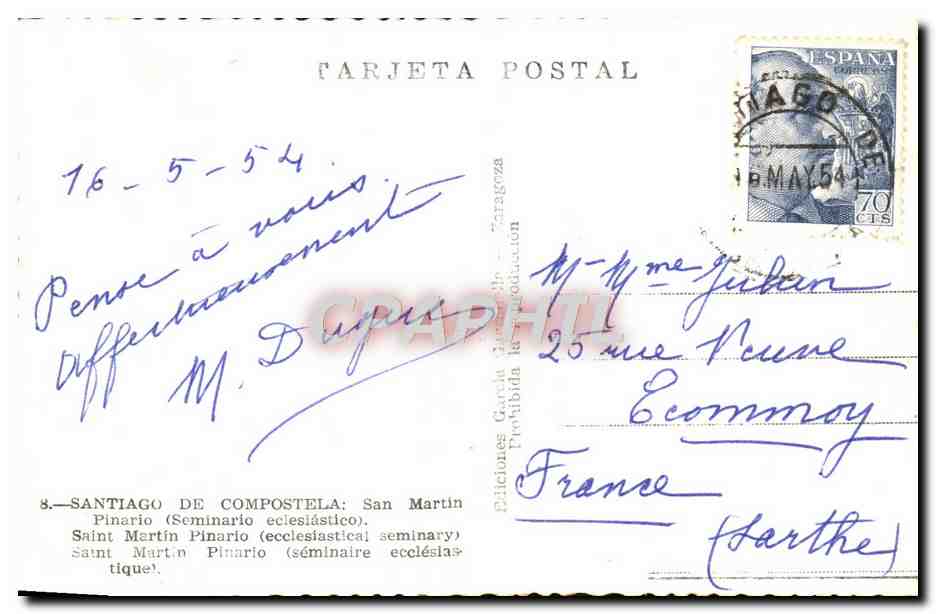 TARJETA POSTAL
ESPAÑA
CORREOS
TIAGO DE
MAY.54
70
CTS
16-5-54.
Pense à vous.
Affectueusement
M.
CPAPHIL
Ediciones García Garrabella - Zaragoza
Prohibida la reproducción
Mr Mme Julian
25 rue Neuve
Ecommoy
France
(Sarthe)
8.—SANTIAGO DE COMPOSTELA: San Martín
Pinario (Seminario eclesiástico).
Saint Martín Pinario (ecclesiastical seminary)
Saint Martin Pinario (séminaire ecclésias-
tique).